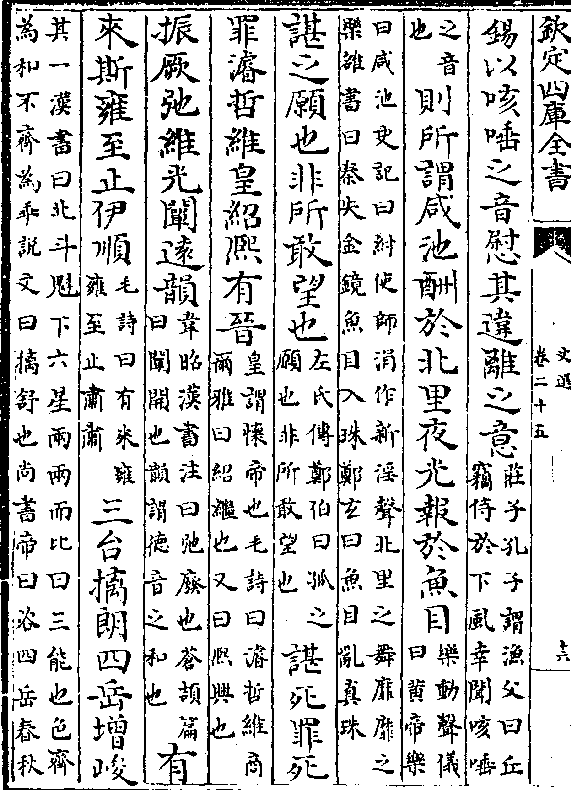 欽定四庫全書
文選
卷二十五
十六
錫以咳唾之音慰其違離之意莊子孔子謂漁父曰丘
竊侍於下風幸聞咳唾
之音
也則所謂咸池酬於北里夜光報於魚目樂動聲儀
曰黄帝樂
曰咸池史記曰紂使師涓作新淫聲北里之舞靡靡之
樂雒書曰秦失金鏡魚目入珠鄭玄曰魚目亂真珠
諶之願也非所敢望也左氏傳鄭伯曰孤之
願也非所敢望也諶死罪死
罪濬哲維皇紹熙有晉皇謂懷帝也毛詩曰濬哲維商
爾雅曰紹繼也又曰熙興也
振厥弛維光闡遠韻韋昭漢書注曰弛廢也蒼頡篇
曰闡開也韻謂德音之和也有
來斯雍至止伊順毛詩曰有來雍
雍至止肅肅三台摛朗四岳增峻
其一漢書曰北斗魁下六星兩兩而比曰三能也色齊
為和不齊為乖說文曰摛舒也尚書帝曰咨四岳春秋